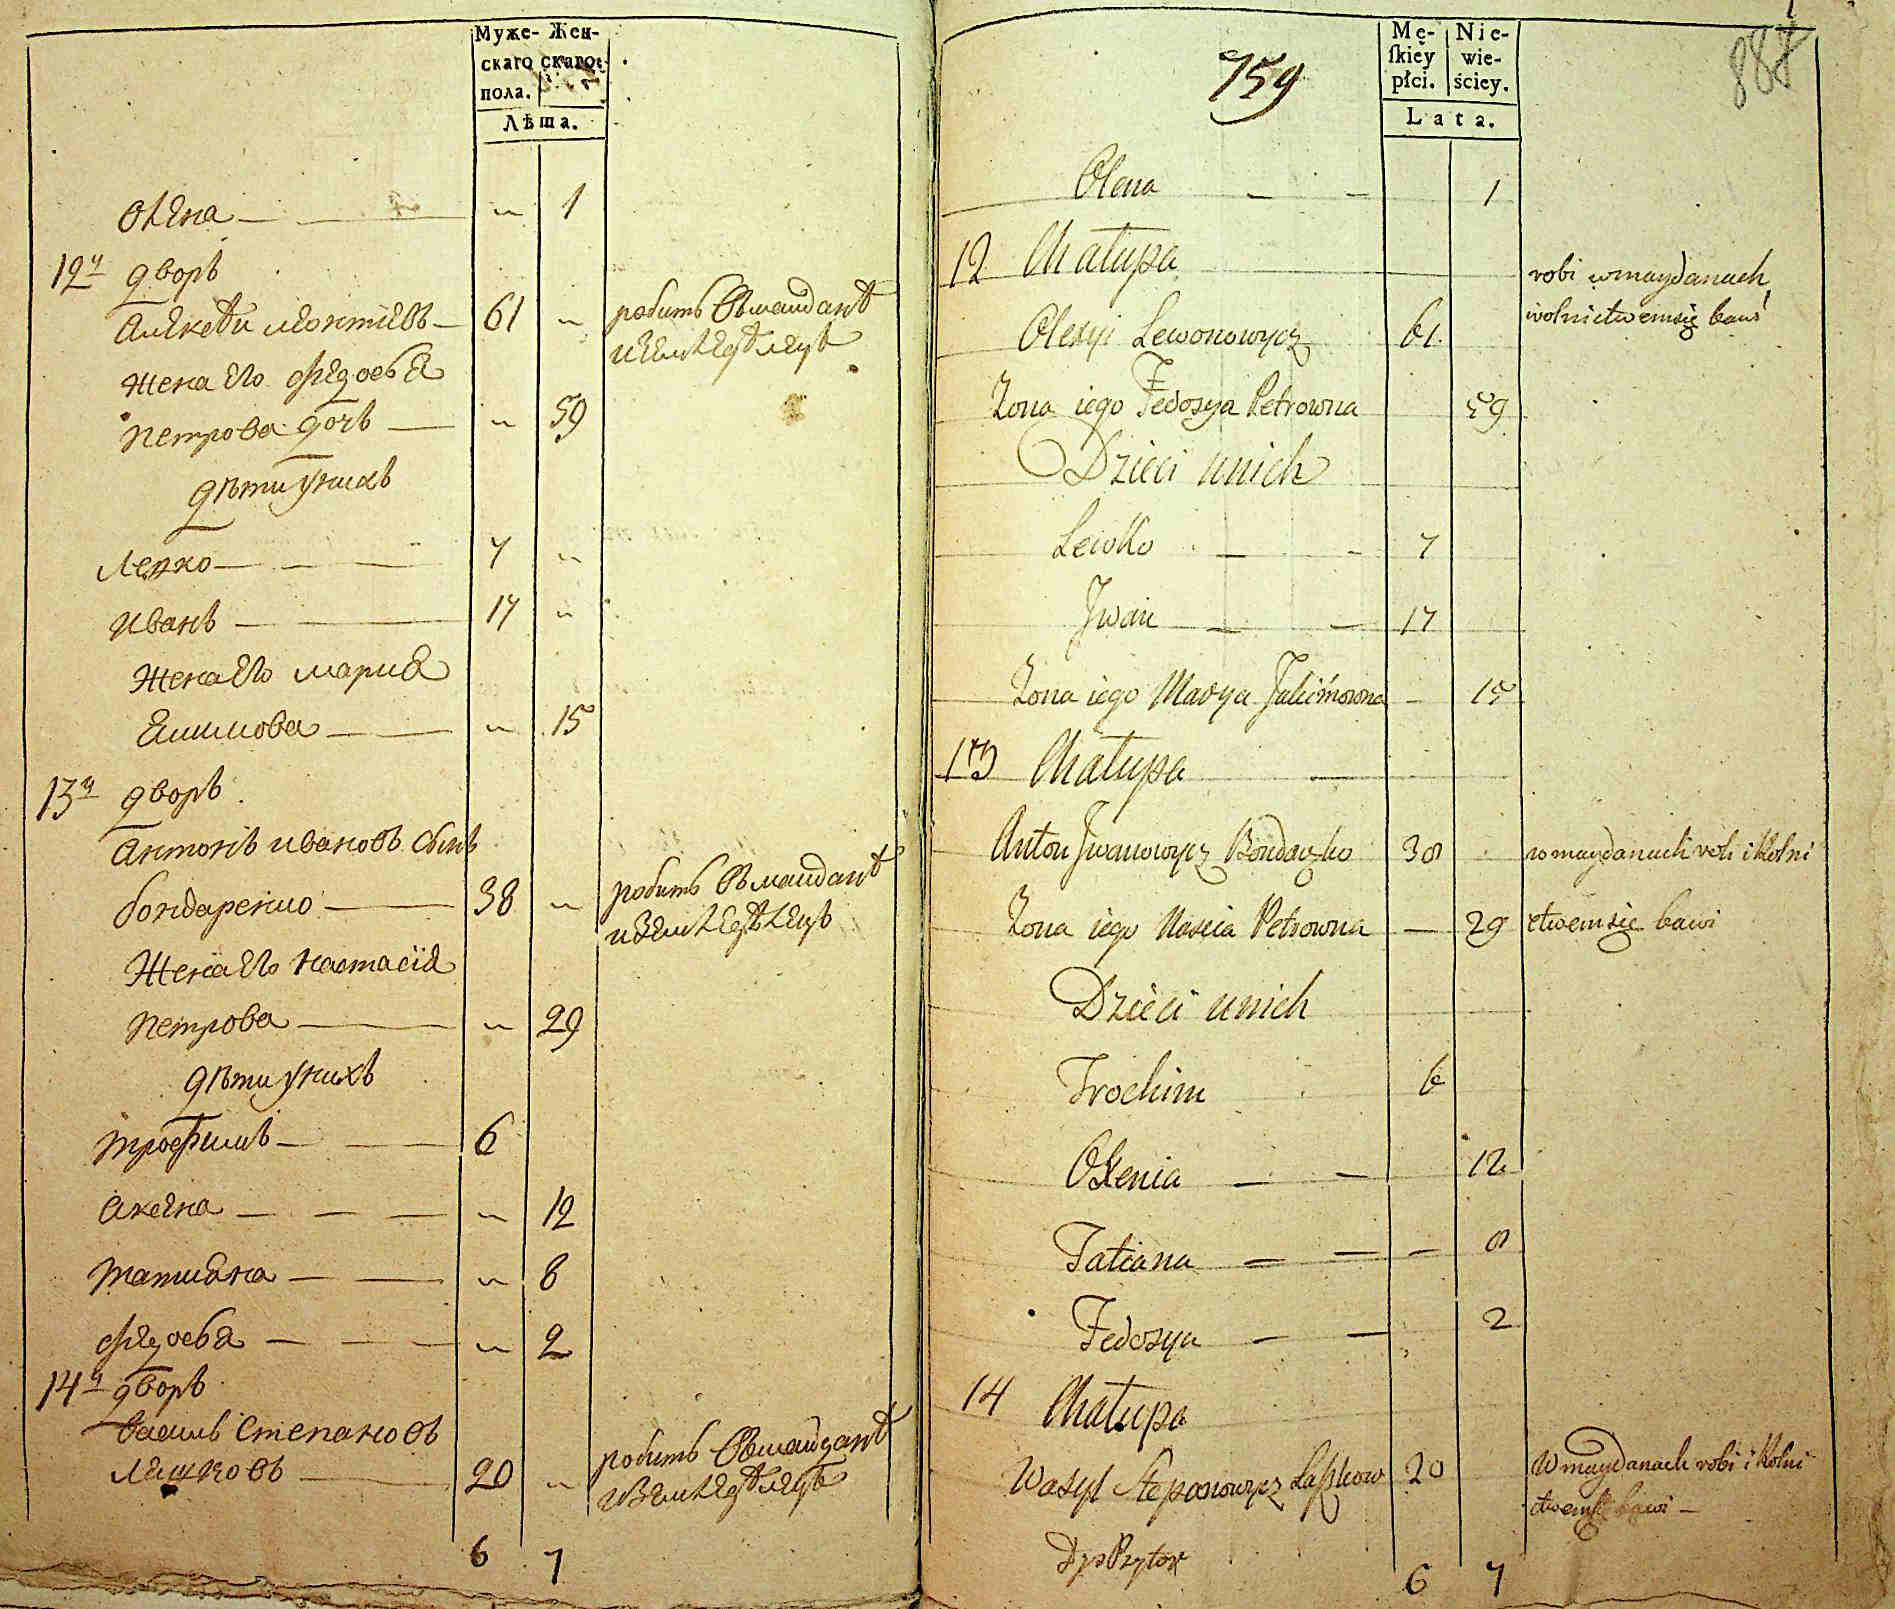 Муже- Жен-
скаго скаго
пола.
Лѣта.
Олена — 1
12й дворъ
Алексѣи Леонтіевъ — 61
робитъ въ майданѣ
и земледѣлецъ
жена его Федосья
Петрова дочь — 59
дѣти у нихъ
Левко — 7
Иванъ — 17
Жена его Мариа
Екимова — 15
13й дворъ
Антонъ Ивановъ сынъ
Бондаренко — 38
робитъ въ майданѣ
и земледѣлецъ
Жена его Настасія
Петрова — 29
дѣти у нихъ
Трофимъ — 6
Аксена — 12
Татиана — 8
Федосья — 2
14й дворъ
Василь Степановъ
Лашковъ — 20
робитъ въ майданѣ
и земледѣлецъ
6 7
759
888
Mę- Nie-
skiey wie-
płci. ściey.
Lata.
Olena — 1
12 Chałupa
robi w maydanach
i rolnictwem się bawi
Olexyi Lewonowycz 61
Zona iego Fedosya Petrowna 59
Dzieci u nich
Lewko — 7
Jwan — 17
Zona iego Marya Jakimowna — 15
13 Chałupa
Anton Jwanowycz Bondarzko 38
w maydanach robi i Rolni
Zona iego Nascia Petrowna — 29
ctwem się bawi
Dzieci u nich
Trochim 6
Oxenia — 12
Tatiana — 8
Fedosya — 2
14 Chałupa
Wasyl Steponowycz Laszkow 20
W maydanach robi i Rolni
ctwem się bawi —
6 7